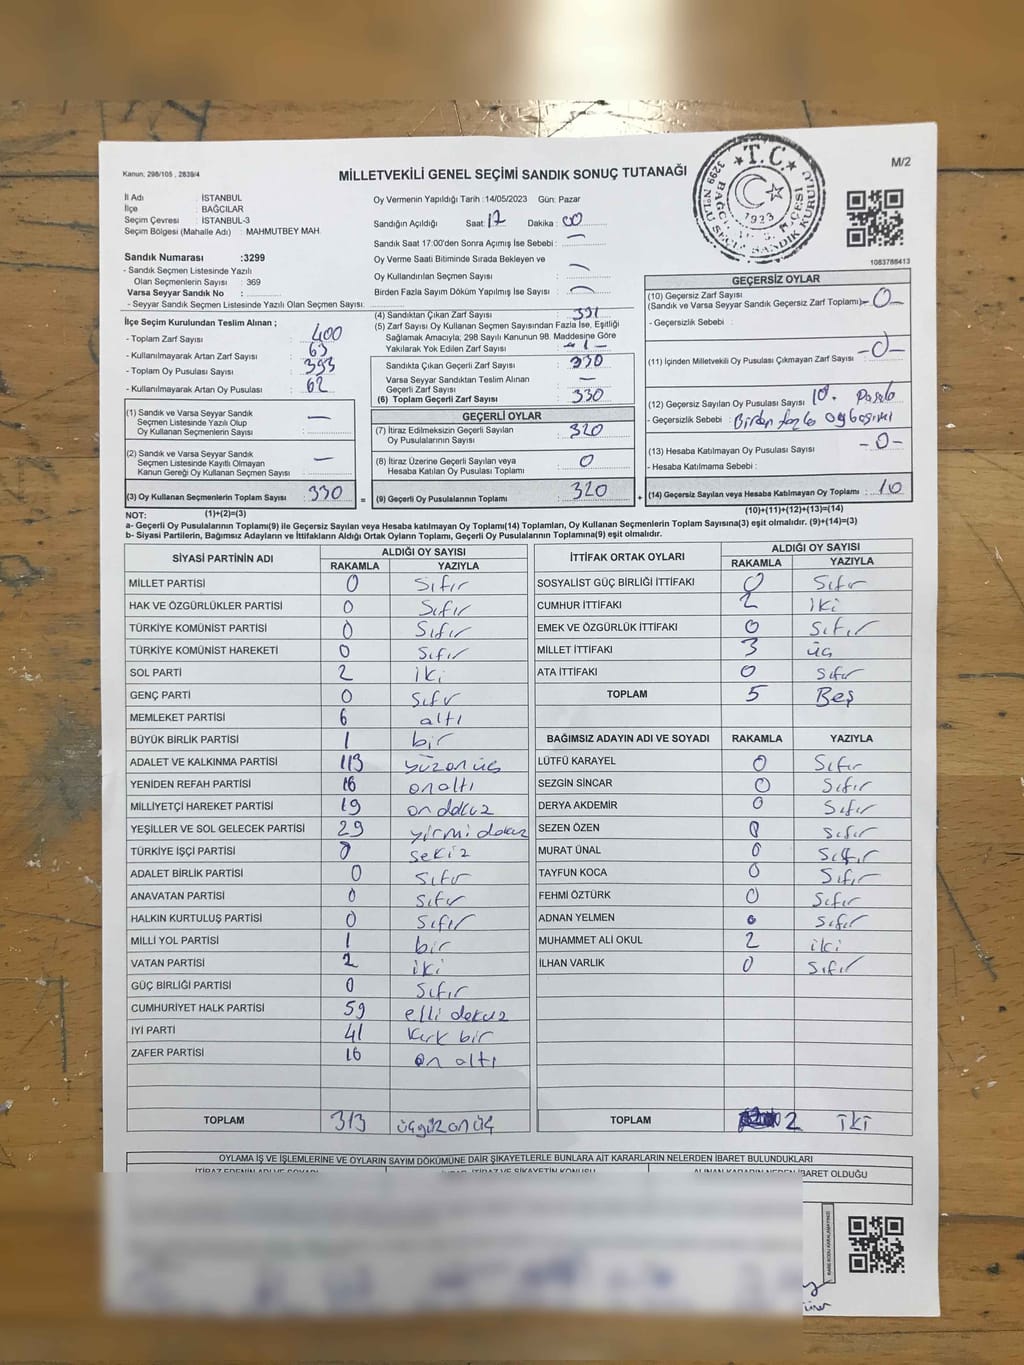 Kanun, 298/105 , 2839/4
MİLLETVEKİLİ GENEL SEÇİMİ SANDIK SONUÇ TUTANAĞI
M/2
T.C.
1923
İl Adı : İSTANBUL
İlçe : BAĞCILAR
Seçim Çevresi : İSTANBUL-3
Seçim Bölgesi (Mahalle Adı) : MAHMUTBEY MAH.
Oy Vermenin Yapıldığı Tarih : 14/05/2023 Gün: Pazar
Sandığın Açıldığı Saat: 17 Dakika : 00
Sandık Saat 17:00'den Sonra Açımış İse Sebebi : —
Oy Verme Saati Bitiminde Sırada Bekleyen ve
Oy Kullandırılan Seçmen Sayısı : —
Birden Fazla Sayım Döküm Yapılmış İse Sayısı : —
1083766413
Sandık Numarası :3299
- Sandık Seçmen Listesinde Yazılı
Olan Seçmenlerin Sayısı : 369
Varsa Seyyar Sandık No :
- Seyyar Sandık Seçmen Listesinde Yazılı Olan Seçmen Sayısı:
İlçe Seçim Kurulundan Teslim Alınan ;
- Toplam Zarf Sayısı : 400
- Kullanılmayarak Artan Zarf Sayısı : 63
- Toplam Oy Pusulası Sayısı : 393
- Kullanılmayarak Artan Oy Pusulası : 62
(1) Sandık ve Varsa Seyyar Sandık
Seçmen Listesinde Yazılı Olup
Oy Kullanan Seçmenlerin Sayısı : —
(2) Sandık ve Varsa Seyyar Sandık
Seçmen Listesinde Kayıtlı Olmayan
Kanun Gereği Oy Kullanan Seçmen Sayısı : —
(3) Oy Kullanan Seçmenlerin Toplam Sayısı : 330
(4) Sandıktan Çıkan Zarf Sayısı : 331
(5) Zarf Sayısı Oy Kullanan Seçmen Sayısından Fazla İse, Eşitliği
Sağlamak Amacıyla; 298 Sayılı Kanunun 98. Maddesine Göre
Yakılarak Yok Edilen Zarf Sayısı : - 1 -
Sandıkta Çıkan Geçerli Zarf Sayısı : 330
Varsa Seyyar Sandıktan Teslim Alınan
Geçerli Zarf Sayısı : —
(6) Toplam Geçerli Zarf Sayısı : 330
GEÇERLİ OYLAR
(7) İtiraz Edilmeksizin Geçerli Sayılan
Oy Pusulalarının Sayısı : 320
(8) İtiraz Üzerine Geçerli Sayılan veya
Hesaba Katılan Oy Pusulası Toplamı : 0
= (9) Geçerli Oy Pusulalarının Toplamı : 320
GEÇERSİZ OYLAR
(10) Geçersiz Zarf Sayısı
(Sandık ve Varsa Seyyar Sandık Geçersiz Zarf Toplamı) -0-
- Geçersizlik Sebebi :
(11) İçinden Milletvekili Oy Pusulası Çıkmayan Zarf Sayısı -0-
(12) Geçersiz Sayılan Oy Pusulası Sayısı 10.
- Geçersizlik Sebebi : Birden fazla
(13) Hesaba Katılmayan Oy Pusulası Sayısı -0-
- Hesaba Katılmama Sebebi :
+ (14) Geçersiz Sayılan veya Hesaba Katılmayan Oy Toplamı : 10
NOT: (1)+(2)=(3)
(10)+(11)+(12)+(13)=(14)
a- Geçerli Oy Pusulalarının Toplamı(9) ile Geçersiz Sayılan veya Hesaba katılmayan Oy Toplamı(14) Toplamları, Oy Kullanan Seçmenlerin Toplam Sayısına(3) eşit olmalıdır. (9)+(14)=(3)
b- Siyasi Partilerin, Bağımsız Adayların ve İttifakların Aldığı Ortak Oyların Toplamı, Geçerli Oy Pusulalarının Toplamına(9) eşit olmalıdır.
SİYASİ PARTİNİN ADI ALDIĞI OY SAYISI
RAKAMLA YAZIYLA
MİLLET PARTİSİ 0 Sıfır
HAK VE ÖZGÜRLÜKLER PARTİSİ 0 Sıfır
TÜRKİYE KOMÜNİST PARTİSİ 0 Sıfır
TÜRKİYE KOMÜNİST HAREKETİ 0 Sıfır
SOL PARTİ 2 iki
GENÇ PARTİ 0 Sıfır
MEMLEKET PARTİSİ 6 altı
BÜYÜK BİRLİK PARTİSİ 1 bir
ADALET VE KALKINMA PARTİSİ 113 yüzonüç
YENİDEN REFAH PARTİSİ 16 onaltı
MİLLİYETÇİ HAREKET PARTİSİ 19 on dokuz
YEŞİLLER VE SOL GELECEK PARTİSİ 29 yirmi dokuz
TÜRKİYE İŞÇİ PARTİSİ 8 sekiz
ADALET BİRLİK PARTİSİ 0 Sıfır
ANAVATAN PARTİSİ 0 Sıfır
HALKIN KURTULUŞ PARTİSİ 0 Sıfır
MİLLİ YOL PARTİSİ 1 bir
VATAN PARTİSİ 2 iki
GÜÇ BİRLİĞİ PARTİSİ 0 Sıfır
CUMHURİYET HALK PARTİSİ 59 elli dokuz
İYİ PARTİ 41 kırk bir
ZAFER PARTİSİ 16 on altı
TOPLAM 313 üçyüzonüç
İTTİFAK ORTAK OYLARI ALDIĞI OY SAYISI
RAKAMLA YAZIYLA
SOSYALİST GÜÇ BİRLİĞİ İTTİFAKI 0 Sıfır
CUMHUR İTTİFAKI 2 iki
EMEK VE ÖZGÜRLÜK İTTİFAKI 0 Sıfır
MİLLET İTTİFAKI 3 üç
ATA İTTİFAKI 0 Sıfır
TOPLAM 5 Beş
BAĞIMSIZ ADAYIN ADI VE SOYADI RAKAMLA YAZIYLA
LÜTFÜ KARAYEL 0 Sıfır
SEZGİN SİNCAR 0 Sıfır
DERYA AKDEMİR 0 Sıfır
SEZEN ÖZEN 0 Sıfır
MURAT ÜNAL 0 Sıfır
TAYFUN KOCA 0 Sıfır
FEHMİ ÖZTÜRK 0 Sıfır
ADNAN YELMEN 0 Sıfır
MUHAMMET ALİ OKUL 2 iki
İLHAN VARLIK 0 Sıfır
TOPLAM 2 İki
OYLAMA İŞ VE İŞLEMLERİNE VE OYLARIN SAYIM DÖKÜMÜNE DAİR ŞİKAYETLERLE BUNLARA AİT KARARLARIN NELERDEN İBARET BULUNDUKLARI